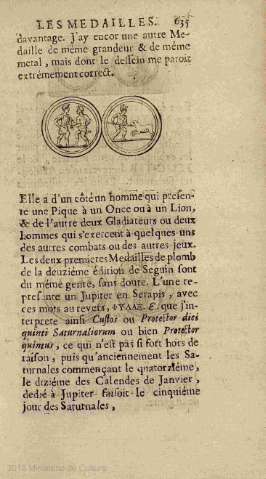 LES MEDAILLES. 635
davantage. j'ay encor une autre Me-
daille de même grandeur & de même
metal, mais dont le dessein me paroit
extrémement correct.
Elle a d'un côté un homme qui presen-
te une Pique à un Once ou à un Lion,
& de l'autre deux Gladiateurs ou deux
hommes qui s'exercent à quelques uns
des autres combats ou des autres jeux.
Les deux premieres Medailles de plomb
de la deuziéme édition de Seguin sont
du même genre, sans doute. L'une re-
presente un Jupiter en Serapis, avec
ces mots au revers, ΦΥΛΑΞ. Ε. que j'in-
terprete ainsi Custos ou Protector diei
quinti Saturnaliorum ou bien Protector
quintus, ce qui n'est pas si fort hors de
raison, puis qu'anciennement les Sa-
turnales commençant le quatorziéme,
le diziéme des Calendes de Janvier,
dedié à Jupiter faisoit le cinquiéme
jour des Saturnales,